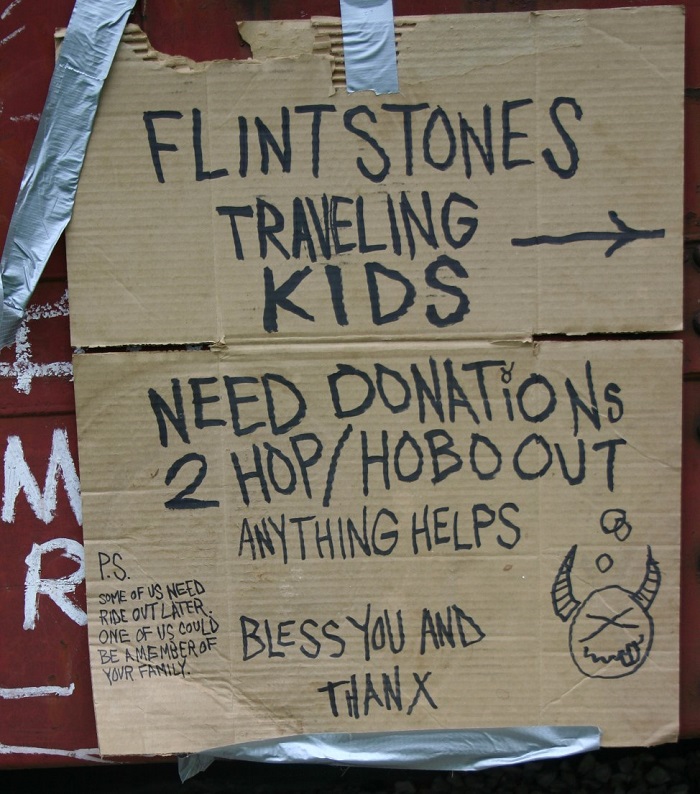 FLINTSTONES
TRAVELING
KIDS
NEED DONATiONs
2 HOP/HOBO OUT
ANYTHING HELPS
P.S.
SOME OF US NEED
RIDE OUT LATER.
ONE OF US COULD
BE A MEMBER OF
YOUR FAMILY.
BLESS YOU AND
THANX
M
R